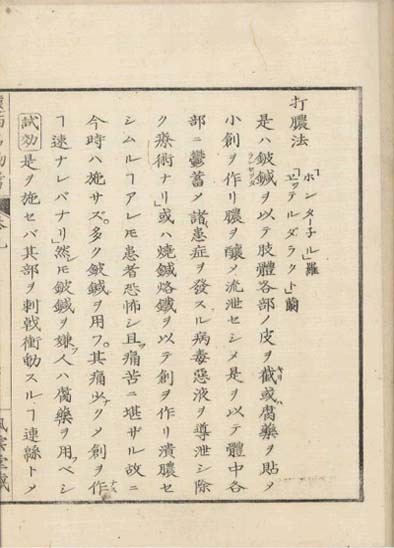 打膿法
「ホンターネル」羅
「エッテルダラクト」蘭
是ハ鈹鍼ヲ以テ肢體各部ノ皮ヲ截或ハ腐藥ヲ貼メ
小創ヲ作リ膿ヲ釀メ流泄セシメ是ヲ以テ體中各
部ニ鬱蓄メ諸患症ヲ發スル病毒惡液ヲ導泄シ除
ク療術ナリ或ハ燒鍼烙鐵ヲ以テ創ヲ作リ潰膿セ
シムルヿアレモ患者恐怖シ且ツ痛苦ニ堪ザル故ニ
今時ハ施サズ多ク鈹鍼ヲ用フ其痛少クメ創ヲ作
ヿ速ナレバナリ然シモ鈹鍼ヲ嫌人ハ腐藥ヲ用ベシ
試効 是ヲ施セバ其部ヲ刺戟衝動スルヿ連緜トメ